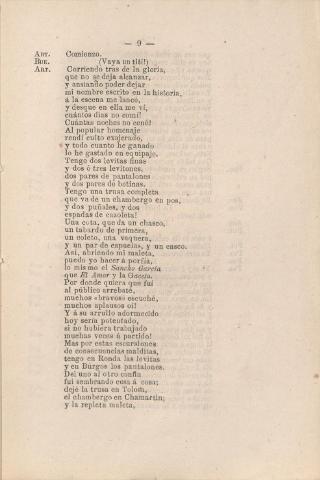 — 9 —
ART. Comienzo.
BUE. (Vaya un tití!)
ART. Corriendo tras de la gloria,
que no se deja alcanzar,
y ansiando poder dejar
mi nombre escrito en la historia,
á la escena me lancé,
y desque en ella me ví,
cuántos dias no comí!
Cuántas noches no cené!
Al popular homenaje
rendí culto exajerado,
y todo cuanto he ganado
lo he gastado en equipaje.
Tengo dos levitas finas
y dos ó tres levitones,
dos pares de pantalones
y dos pares de botinas.
Tengo una trusa completa
que va de un chambergo en pos,
y dos puñales, y dos
espadas de cazoleta!
Una cota, que da un chasco,
un tabardo de primera,
un coleto, una vaquera,
y un par de espuelas, y un casco.
Así, abriendo mi maleta,
puedo yo hacer á porfía,
lo mismo el Sancho García
que El Amor y la Gaceta.
Por donde quiera que fuí
al público arrebaté,
muchos «bravos» escuché,
muchos aplausos oí!
Y á su arrullo adormecido
hoy sería potentado,
si no hubiera trabajado
muchas veces á partido!
Mas por estas escursiones
de consecuencias malditas,
tengo en Ronda las levitas
y en Búrgos los pantalones.
Del uno al otro confin
fuí sembrando cosa á cosa;
dejé la trusa en Tolosa,
el chambergo en Chamartin;
y la repleta maleta,